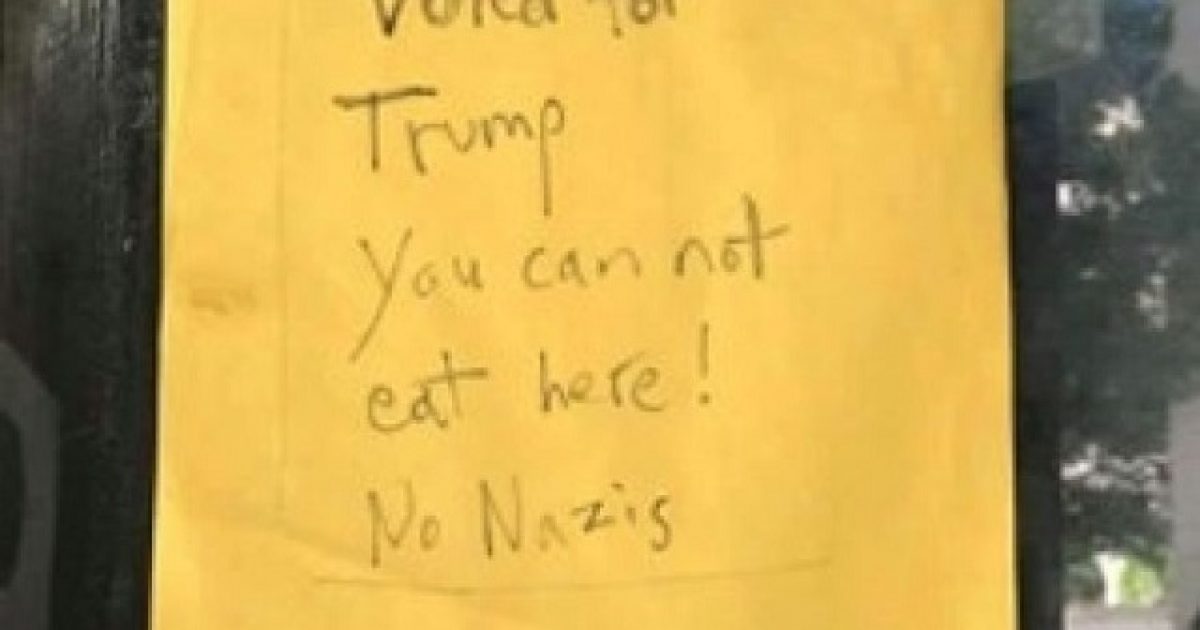 Voted for
Trump
You can not
eat here!
No Nazis